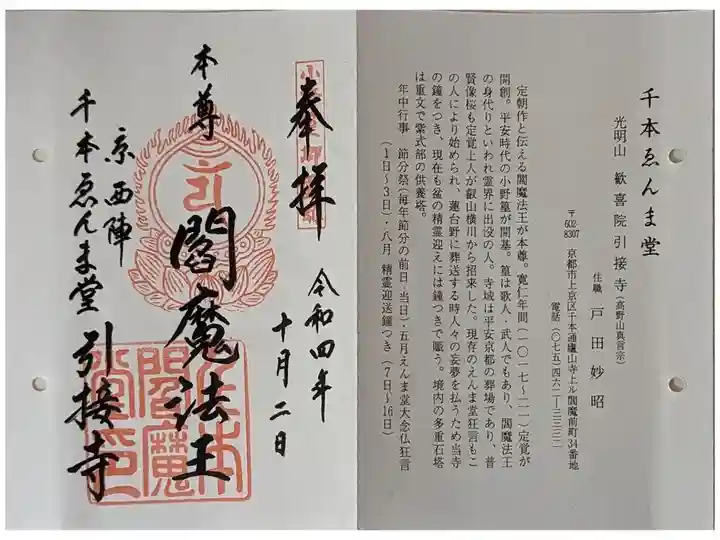 千本ゑんま堂
光明山 歓喜院引接寺(高野山真言宗)
住職 戸田妙昭
〒602-8307 京都市上京区千本通廬山寺上ル閻魔前町34番地
電話(〇七五)四六二―三三三二
定朝作と伝える閻魔法王が本尊。寛仁年間(一〇一七~二一)定覚が
開創。平安時代の小野篁が開基。篁は歌人・武人でもあり、閻魔法王
の身代りといわれ霊界に出没の人。寺域は平安京都の葬場であり、普
賢像桜も定覚上人が叡山横川から招来した。現存のえんま堂狂言もこ
の人により始められ、蓮台野に葬送する時人々の妄夢を払うため当寺
の鐘をつき、現在も盆の精霊迎えには鐘つきで賑う。境内の多重石塔
は重文で紫式部の供養塔。
年中行事 節分祭(毎年節分の前日・当日)・五月えんま堂大念仏狂言
(1日~3日)・八月 精霊迎送鐘つき(7日~16日)
奉拝
令和四年
十月二日
本尊
閻魔法王
京西陣
千本ゑんま堂
引接寺